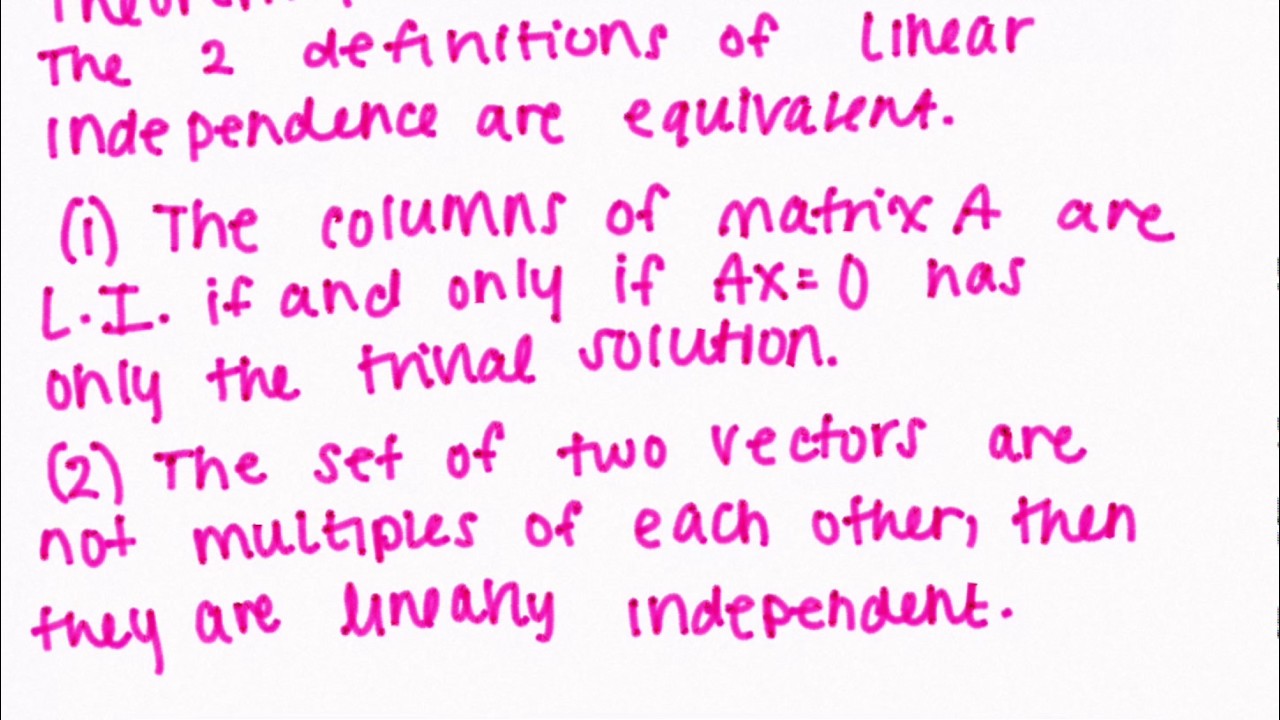 Theorem
The 2 definitions of linear
independence are equivalent.
(1) The columns of matrix A are
L.I. if and only if Ax=0 has
only the trivial solution.
(2) The set of two vectors are
not multiples of each other, then
they are linearly independent.